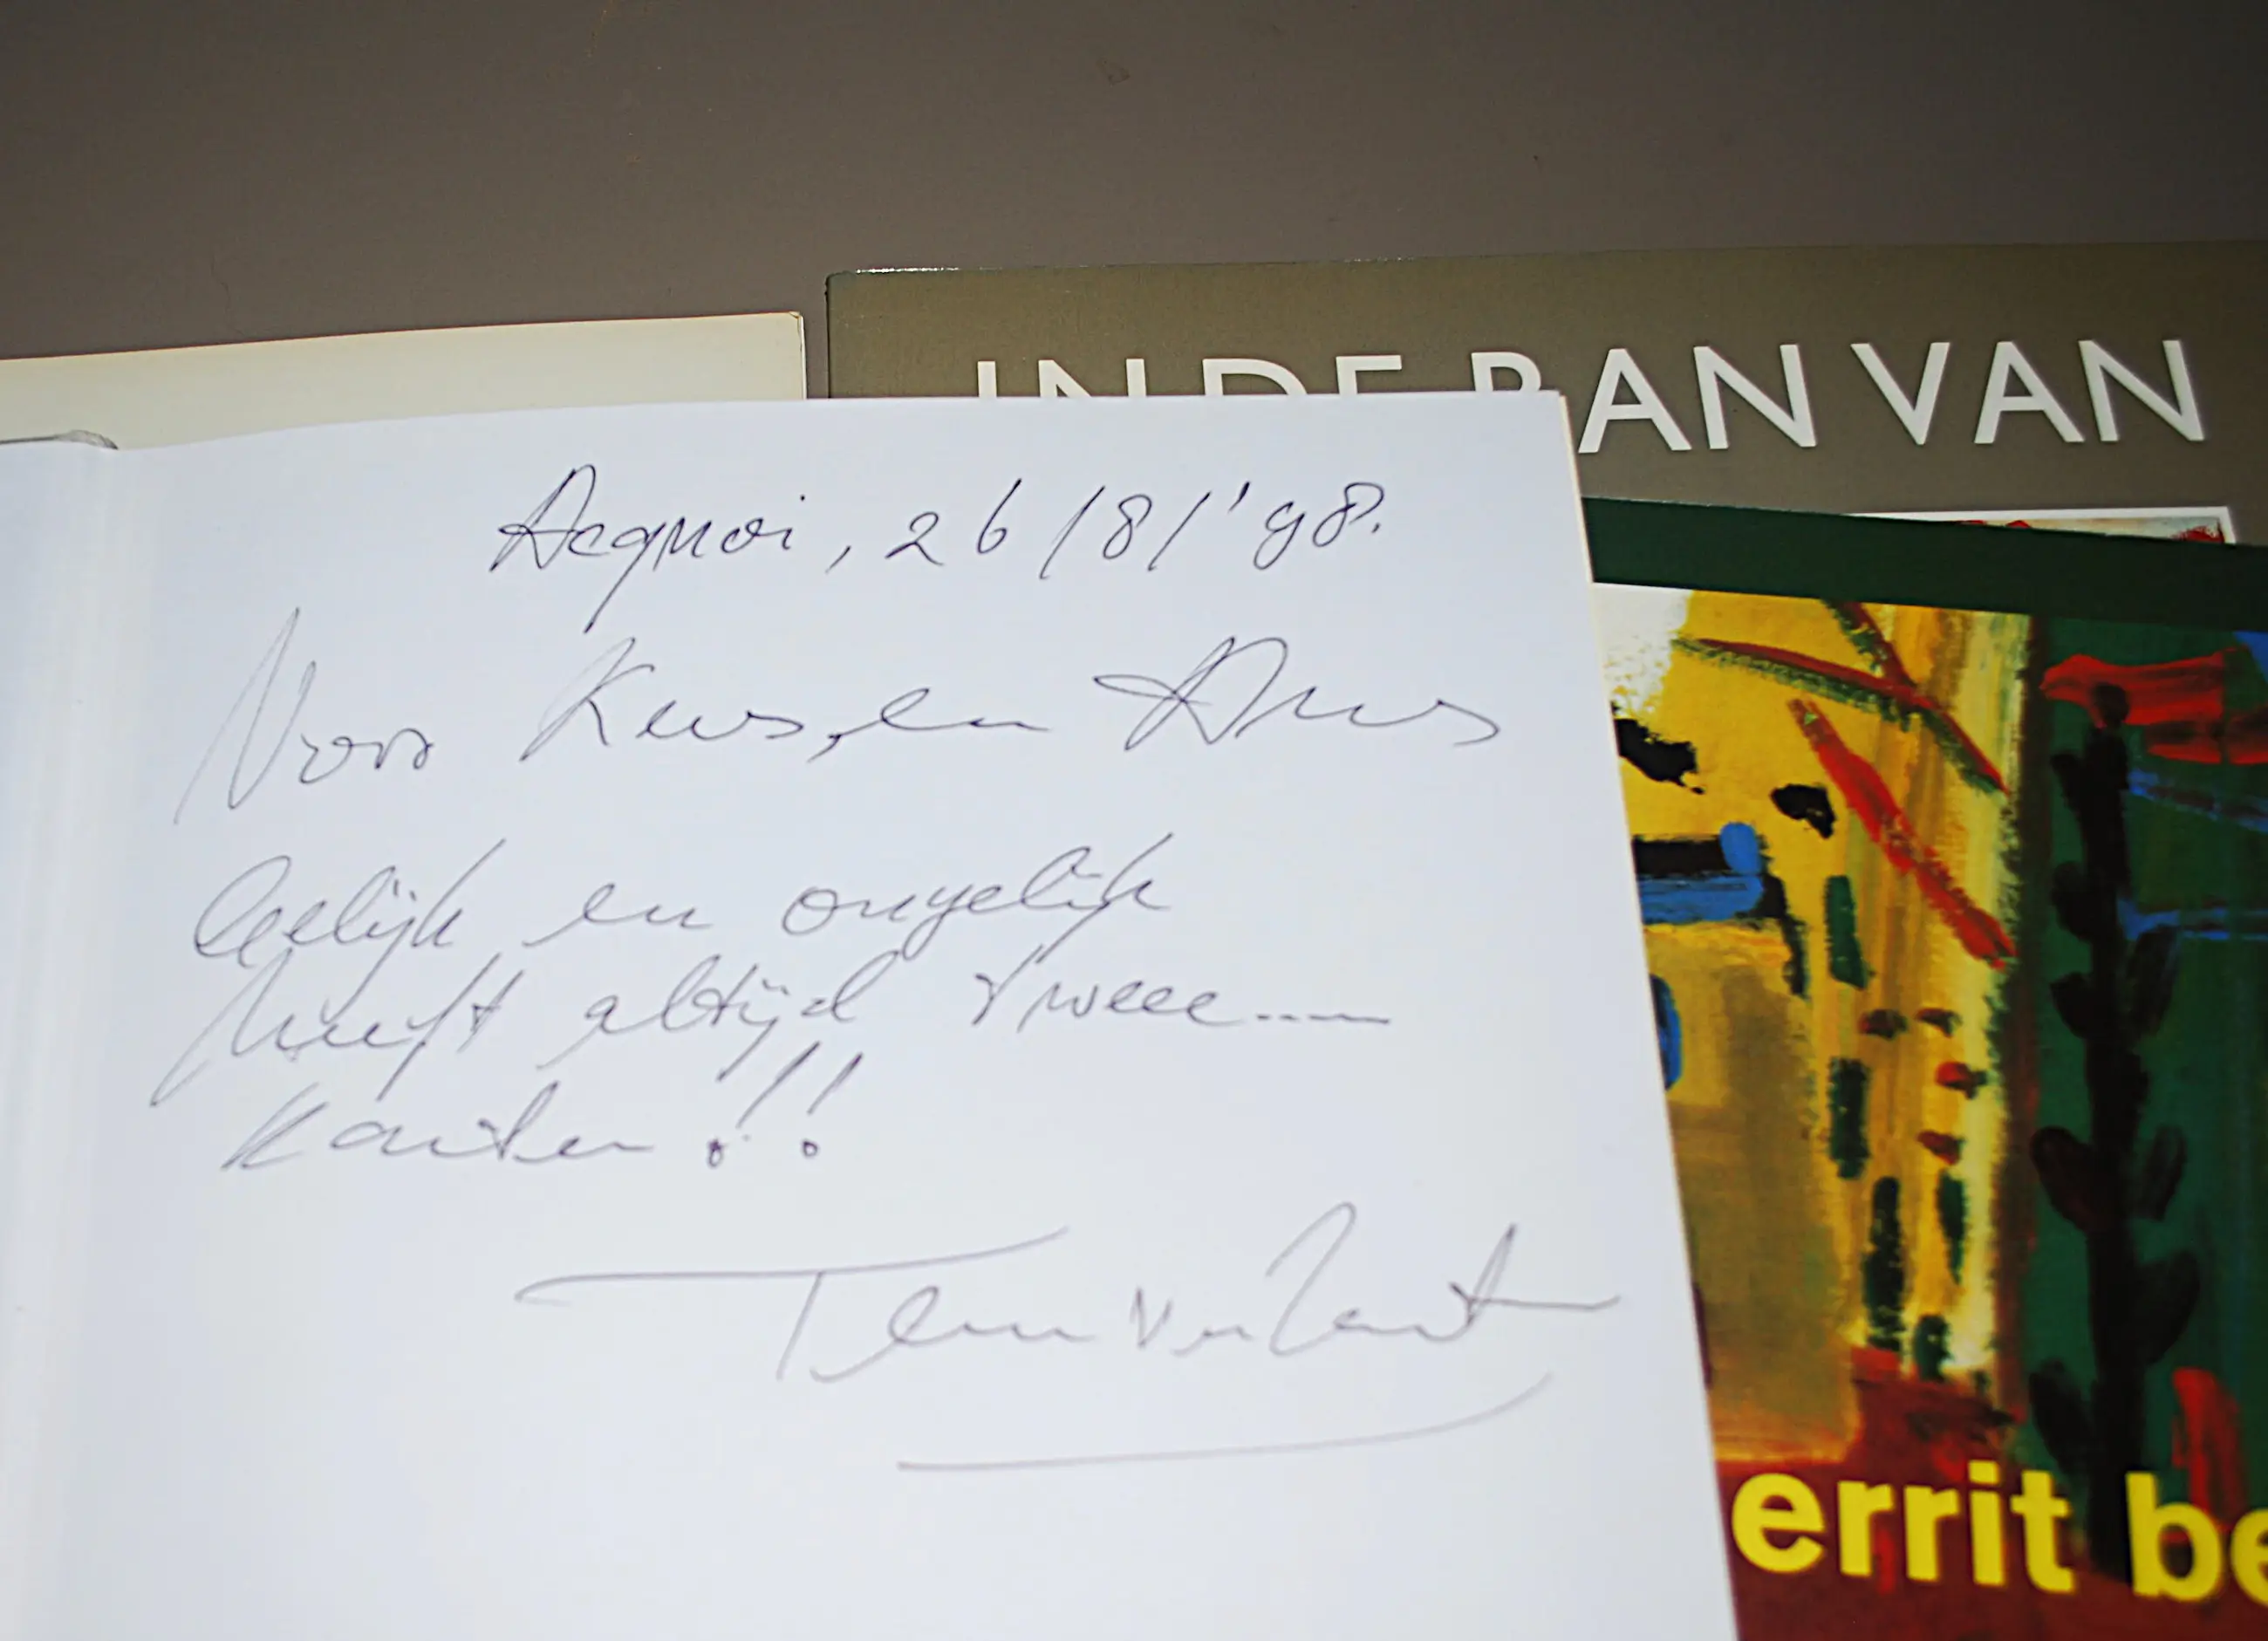 IN DE BAN VAN
Acquoi, 26/8/'98.
Voor Kees, en Ans
Gelijk en ongelijk
heeft altijd twee....
kanten!!
Teun Verlaat
errit be